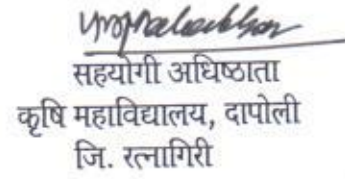 सहयोगी अधिष्ठाता
कृषि महाविद्यालय, दापोली
जि. रत्नागिरी